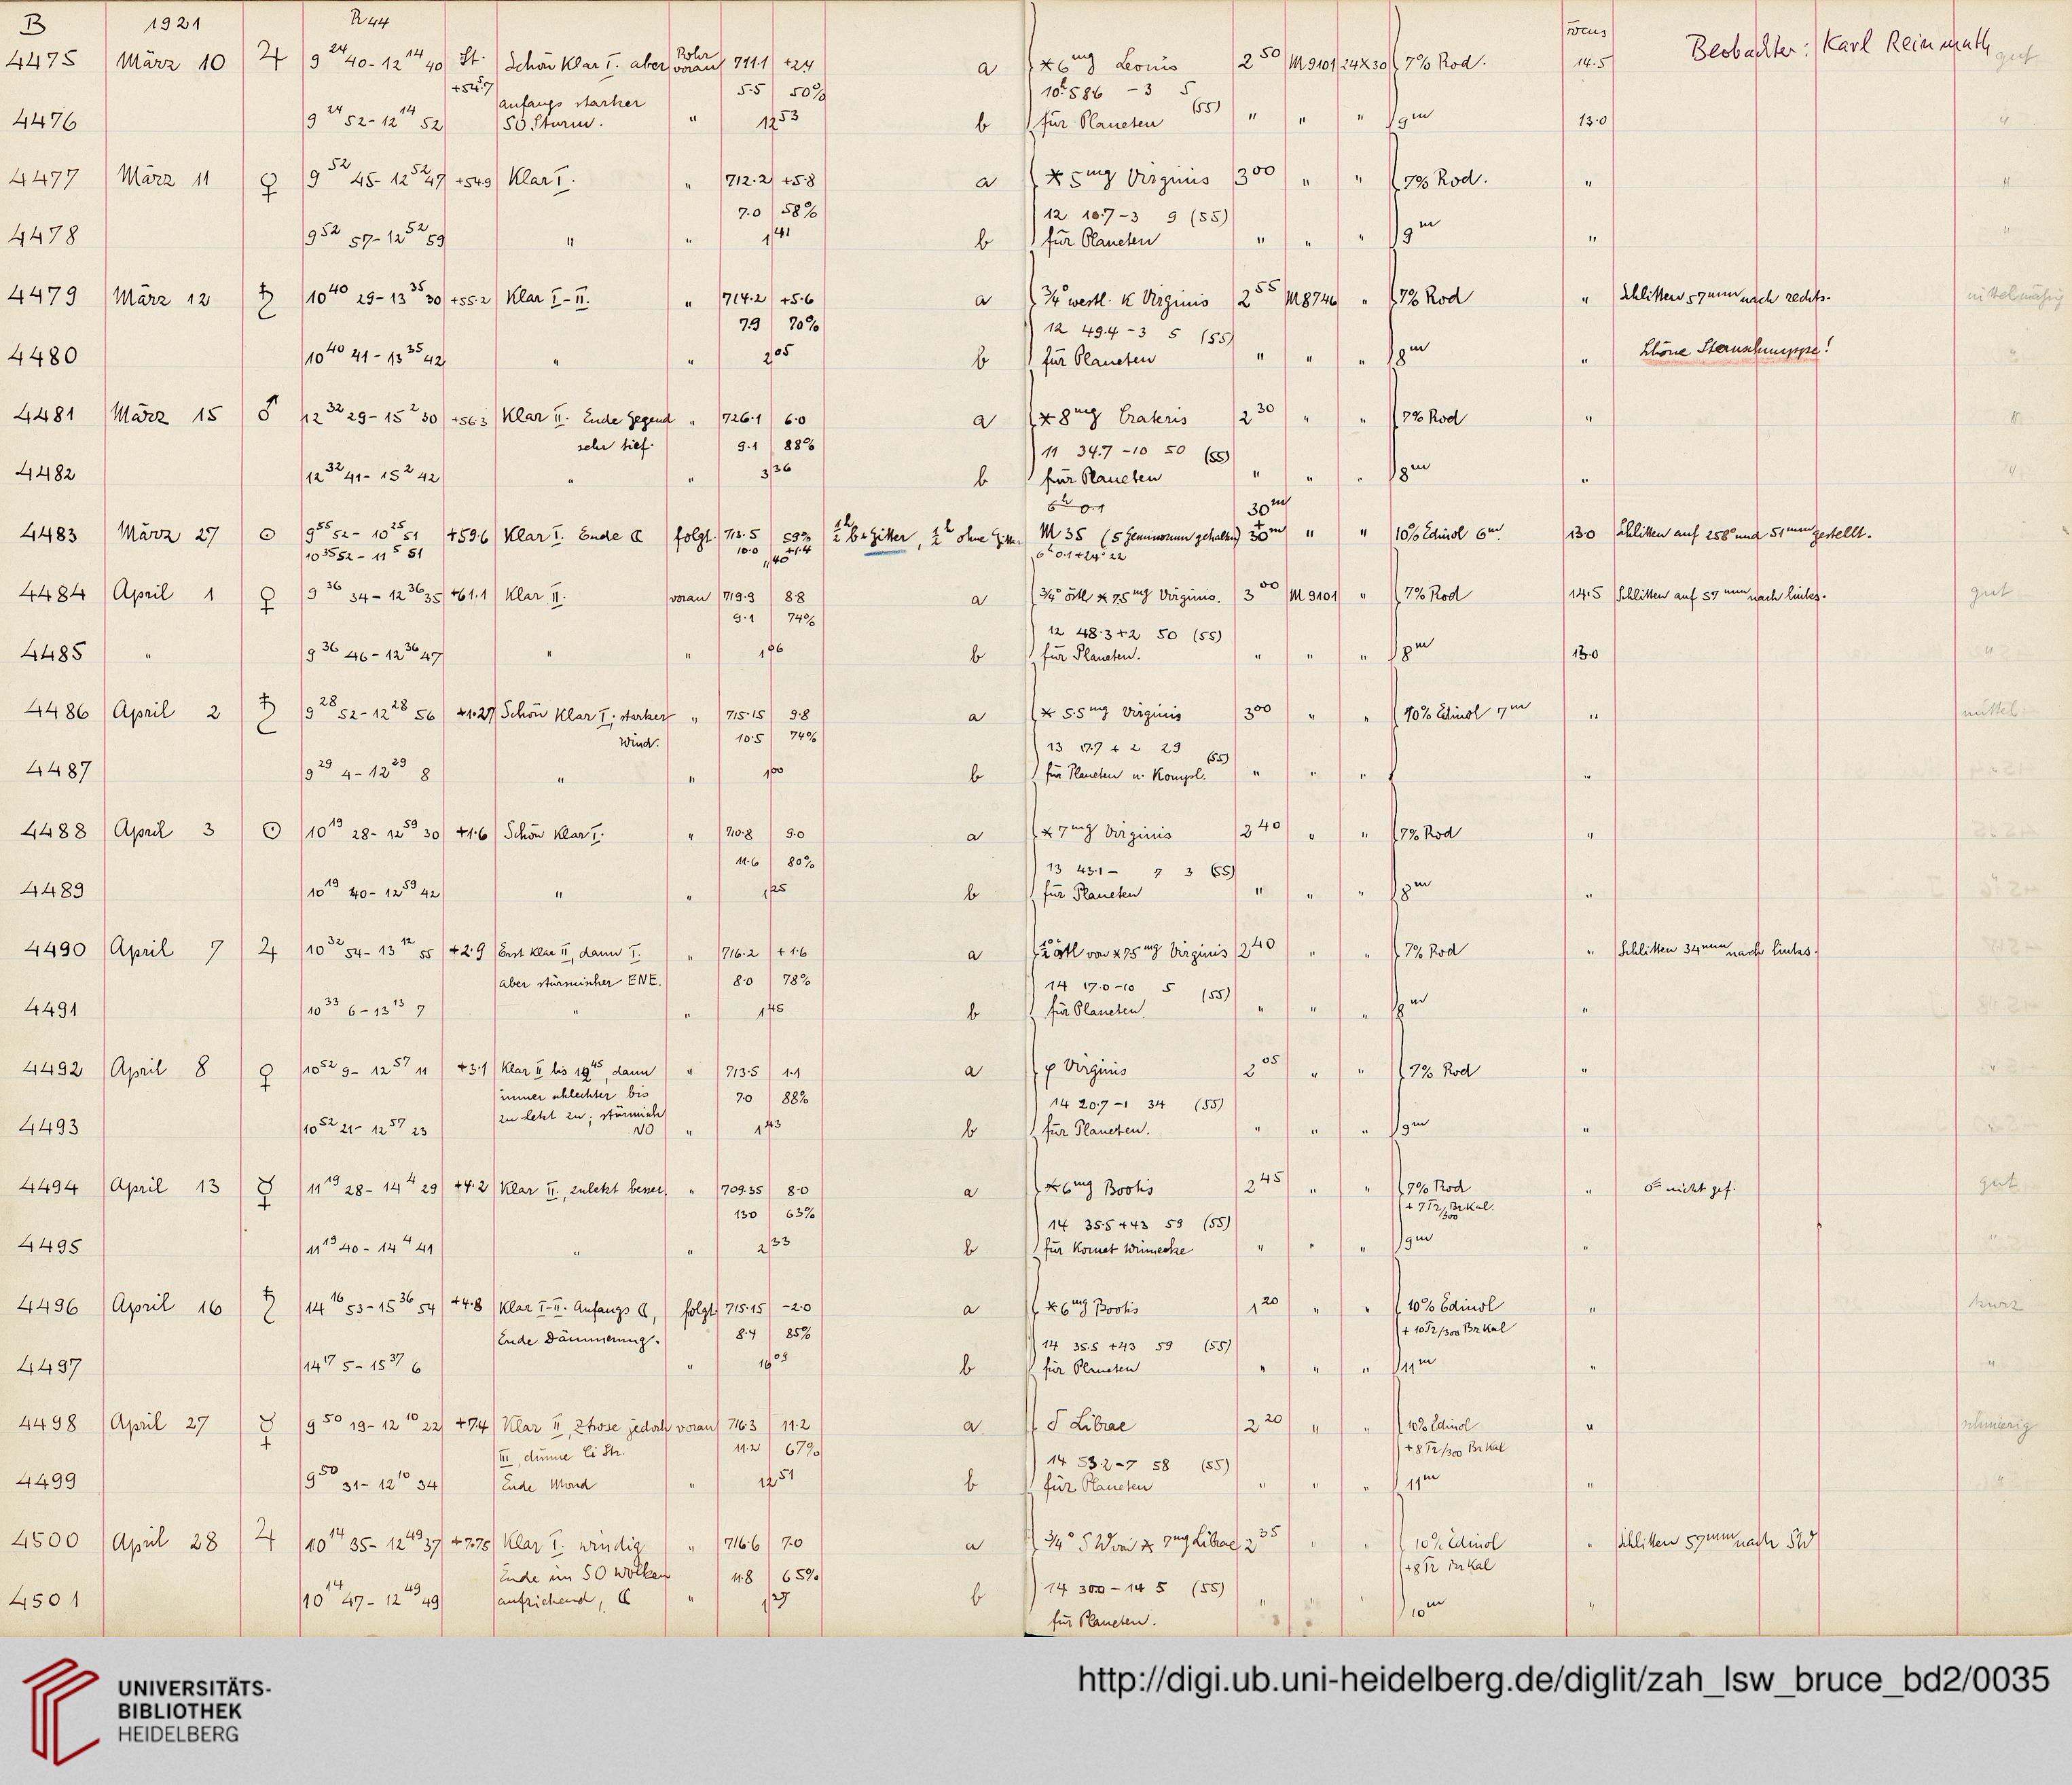 B 1921 R44 Focus
Beobachter: Karl Reinmuth
4475 März 10 ♃ 9 24 40 - 12 14 40 St. +54.7 Schön klar I. aber Rohr voran 711.1 +2.4 a * 6mg Leonis 2 50 M9101 24x30 7% Rod. 14.5 gut
anfangs starker 5.5 50% 10h 58.6 -3 5 (55)
4476 9 24 52 - 12 14 52 SO Sturm. " 12 53 b für Planeten " " " 9m 13.0 "
4477 März 11 ♀ 9 52 45 - 12 52 47 +54.9 Klar I. " 712.2 +5.8 a * 5mg Virginis 3 00 " " 7% Rod. " "
7.0 58% 12 10.7 -3 9 (55)
4478 9 52 57 - 12 52 59 " " 1 41 b für Planeten " " " 9m " "
4479 März 12 ♄ 10 40 29 - 13 35 30 +55.2 Klar I-II. " 714.2 +5.6 a 3/4° westl. κ Virginis 2 55 M8746 " 7% Rod " Schlitten 57mm nach rechts. mittelmäßig
7.9 70% 12 49.4 -3 5 (55)
4480 10 40 41 - 13 35 42 " " 2 05 b für Planeten " " " 8m " Schöne Sternschnuppe! "
4481 März 15 ♂ 12 32 29 - 15 2 30 +56.3 Klar II. Ende Gegend " 726.1 6.0 a * 8mg Crateris 2 30 " " 7% Rod " "
sehr tief. 9.1 88% 11 34.7 -10 50 (55)
4482 12 32 41 - 15 2 42 " " 3 36 b für Planeten " " " 8m " "
6h 0.1 30m
4483 März 27 ⊙ 9 55 52 - 10 25 51 +59.6 Klar I. Ende ☾ folgt. 713.5 59% 1/2h b=Gitter, 1/2h ohne Gitter M 35 (5 Geminorum gehalten) + 30m " " 10% Edinol 6m. 13.0 Schlitten auf 258° und 51mm gestellt.
10 35 52 - 11 5 51 10.0 +1.4 11 40 6h 0.1 +24° 22
4484 April 1 ♀ 9 36 34 - 12 36 35 +61.1 Klar II. voran 719.9 8.8 a 3/4° östl * 7.5mg Virginis. 3 00 M9101 " 7% Rod 14.5 Schlitten auf 57mm nach links. gut
9.1 74% 12 48.3 +2 50 (55)
4485 " 9 36 46 - 12 36 47 " " 1 06 b für Planeten. " " " 8m 13.0 "
4486 April 2 ♄ 9 28 52 - 12 28 56 +1.27 Schön Klar I; starker " 715.15 9.8 a * 5.5mg Virginis 3 00 " " 10% Edinol 7m " mittel
Wind. 10.5 74% 13 17.7 + 2 29 (55)
4487 9 29 4 - 12 29 8 " " 1 00 b für Planeten u. Kompl. " " " "
4488 April 3 ⊙ 10 19 28 - 12 59 30 +1.6 Schön klar I. " 710.8 9.0 a * 7mg Virginis 2 40 " " 7% Rod "
11.6 80% 13 43.1 - 7 3 (55)
4489 10 19 40 - 12 59 42 " " 1 25 b für Planeten " " " 8m "
4490 April 7 ♃ 10 32 54 - 13 12 55 +2.9 Erst klar II, dann I. " 716.2 +1.6 a 1/2° östl von * 7.5mg Virginis 2 40 " " 7% Rod " Schlitten 34mm nach links.
aber stürmischer ENE. 8.0 78% 14 17.0 -10 5 (55)
4491 10 33 6 - 13 13 7 " " 1 45 b für Planeten. " " " 8m "
4492 April 8 ♀ 10 52 9 - 12 57 11 +3.1 Klar II bis 12 45, dann " 713.5 1.1 a φ Virginis 2 05 " " 7% Rod "
immer schlechter bis 7.0 88% 14 20.7 -1 34 (55)
zuletzt zu; stürmisch
4493 10 52 21 - 12 57 23 NO " 1 43 b für Planeten. " " " 9m "
4494 April 13 ☿ 11 19 28 - 14 4 29 +4.2 Klar II, zuletzt besser. " 709.35 8.0 a * 6mg Bootis 2 45 " " 7% Rod " nicht gef. gut
13.0 63% 14 35.5 +43 59 (55) + 7 T2/300 Br Kal.
4495 11 19 40 - 14 4 41 " " 2 33 b für Komet Winnecke " " " 9m "
4496 April 16 ♄ 14 16 53 - 15 36 54 +4.8 Klar I-II. Anfangs ☾, folgt. 715.15 -2.0 a * 6mg Bootis 1 20 " " 10% Edinol " kurz
Ende Dämmerung. 8.4 85% 14 35.5 +43 59 (55) + 10 T2/300 Br Kal
4497 14 17 5 - 15 37 6 " 16 09 b für Planeten " " " 11m " "
4498 April 27 ☿ 9 50 19 - 12 10 22 +7.4 Klar II, jedoch voran 716.3 11.2 a δ Librae 2 20 " " 10% Edinol " schmierig
III, dünne Ci Str. 11.2 67% 14 53.2 -7 58 (55) + 8 T2/300 Br Kal
4499 9 50 31 - 12 10 34 Ende Mond " 12 51 b für Planeten " " " 11m " "
4500 April 28 ♃ 10 14 35 - 12 49 37 +7.75 Klar I. windig " 716.6 7.0 a 3/4° SW von * 7mg Librae 2 35 " " 10% Edinol " Schlitten 57mm nach SW
Ende im SO Wolken 11.8 65% 14 30.0 -14 5 (55) + 8 T2 Br Kal
4501 10 14 47 - 12 49 49 aufziehend, ☾ " b für Planeten. " " " 10m "
UNIVERSITÄTS-
BIBLIOTHEK
HEIDELBERG
http://digi.ub.uni-heidelberg.de/diglit/zah_lsw_bruce_bd2/0035